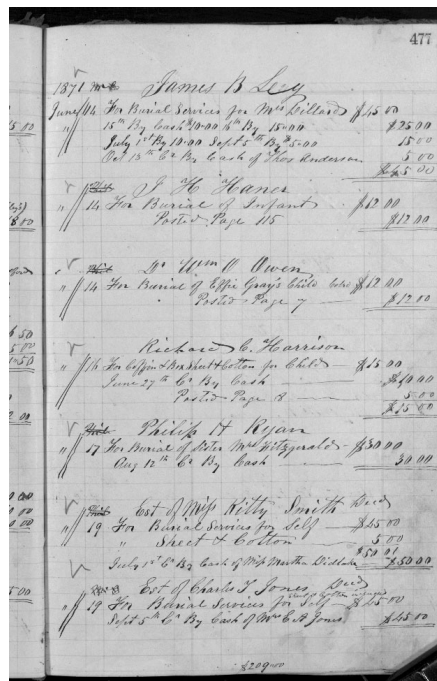 477
1871 James B Levy
June 14 For Burial Services for Mrs Dillard $45 00
" 15th By Cash $10.00 16th By 15.00 $25 00
July 1st By 10.00 Sept 5th By $5.00 15 00
Oct 13th Cr By Cash of Thos Anderson 5 00
$45 00
J H Haner
" 14 For Burial of Infant $12 00
Posted Page 115 $12 00
Dr Wm O Owen
" 14 For Burial of Effie Gray's Child $12 00
" Posted Page 7 $12 00
Richard C. Harrison
" 16 For Coffin & Box Sheet & Cotton for Child $15 00
June 27th Cr By Cash $10 00
Posted Page 8 5 00
$15 00
Philip H Ryan
" 17 For Burial of Sister Mrs Fitzgerald $30 00
Aug 12th Cr By Cash 30 00
Est of Miss Kitty Smith Decd
" 19 For Burial Services for Self $45 00
" Sheet & Cotton 5 00
$50 01
July 1st Cr By Cash of Miss Martha $50 00
Est of Charles T Jones Decd
" 19 For Burial Services for Self $45 00
Sept 5th Cr By Cash of Mrs E A Jones $45 00
$209.00